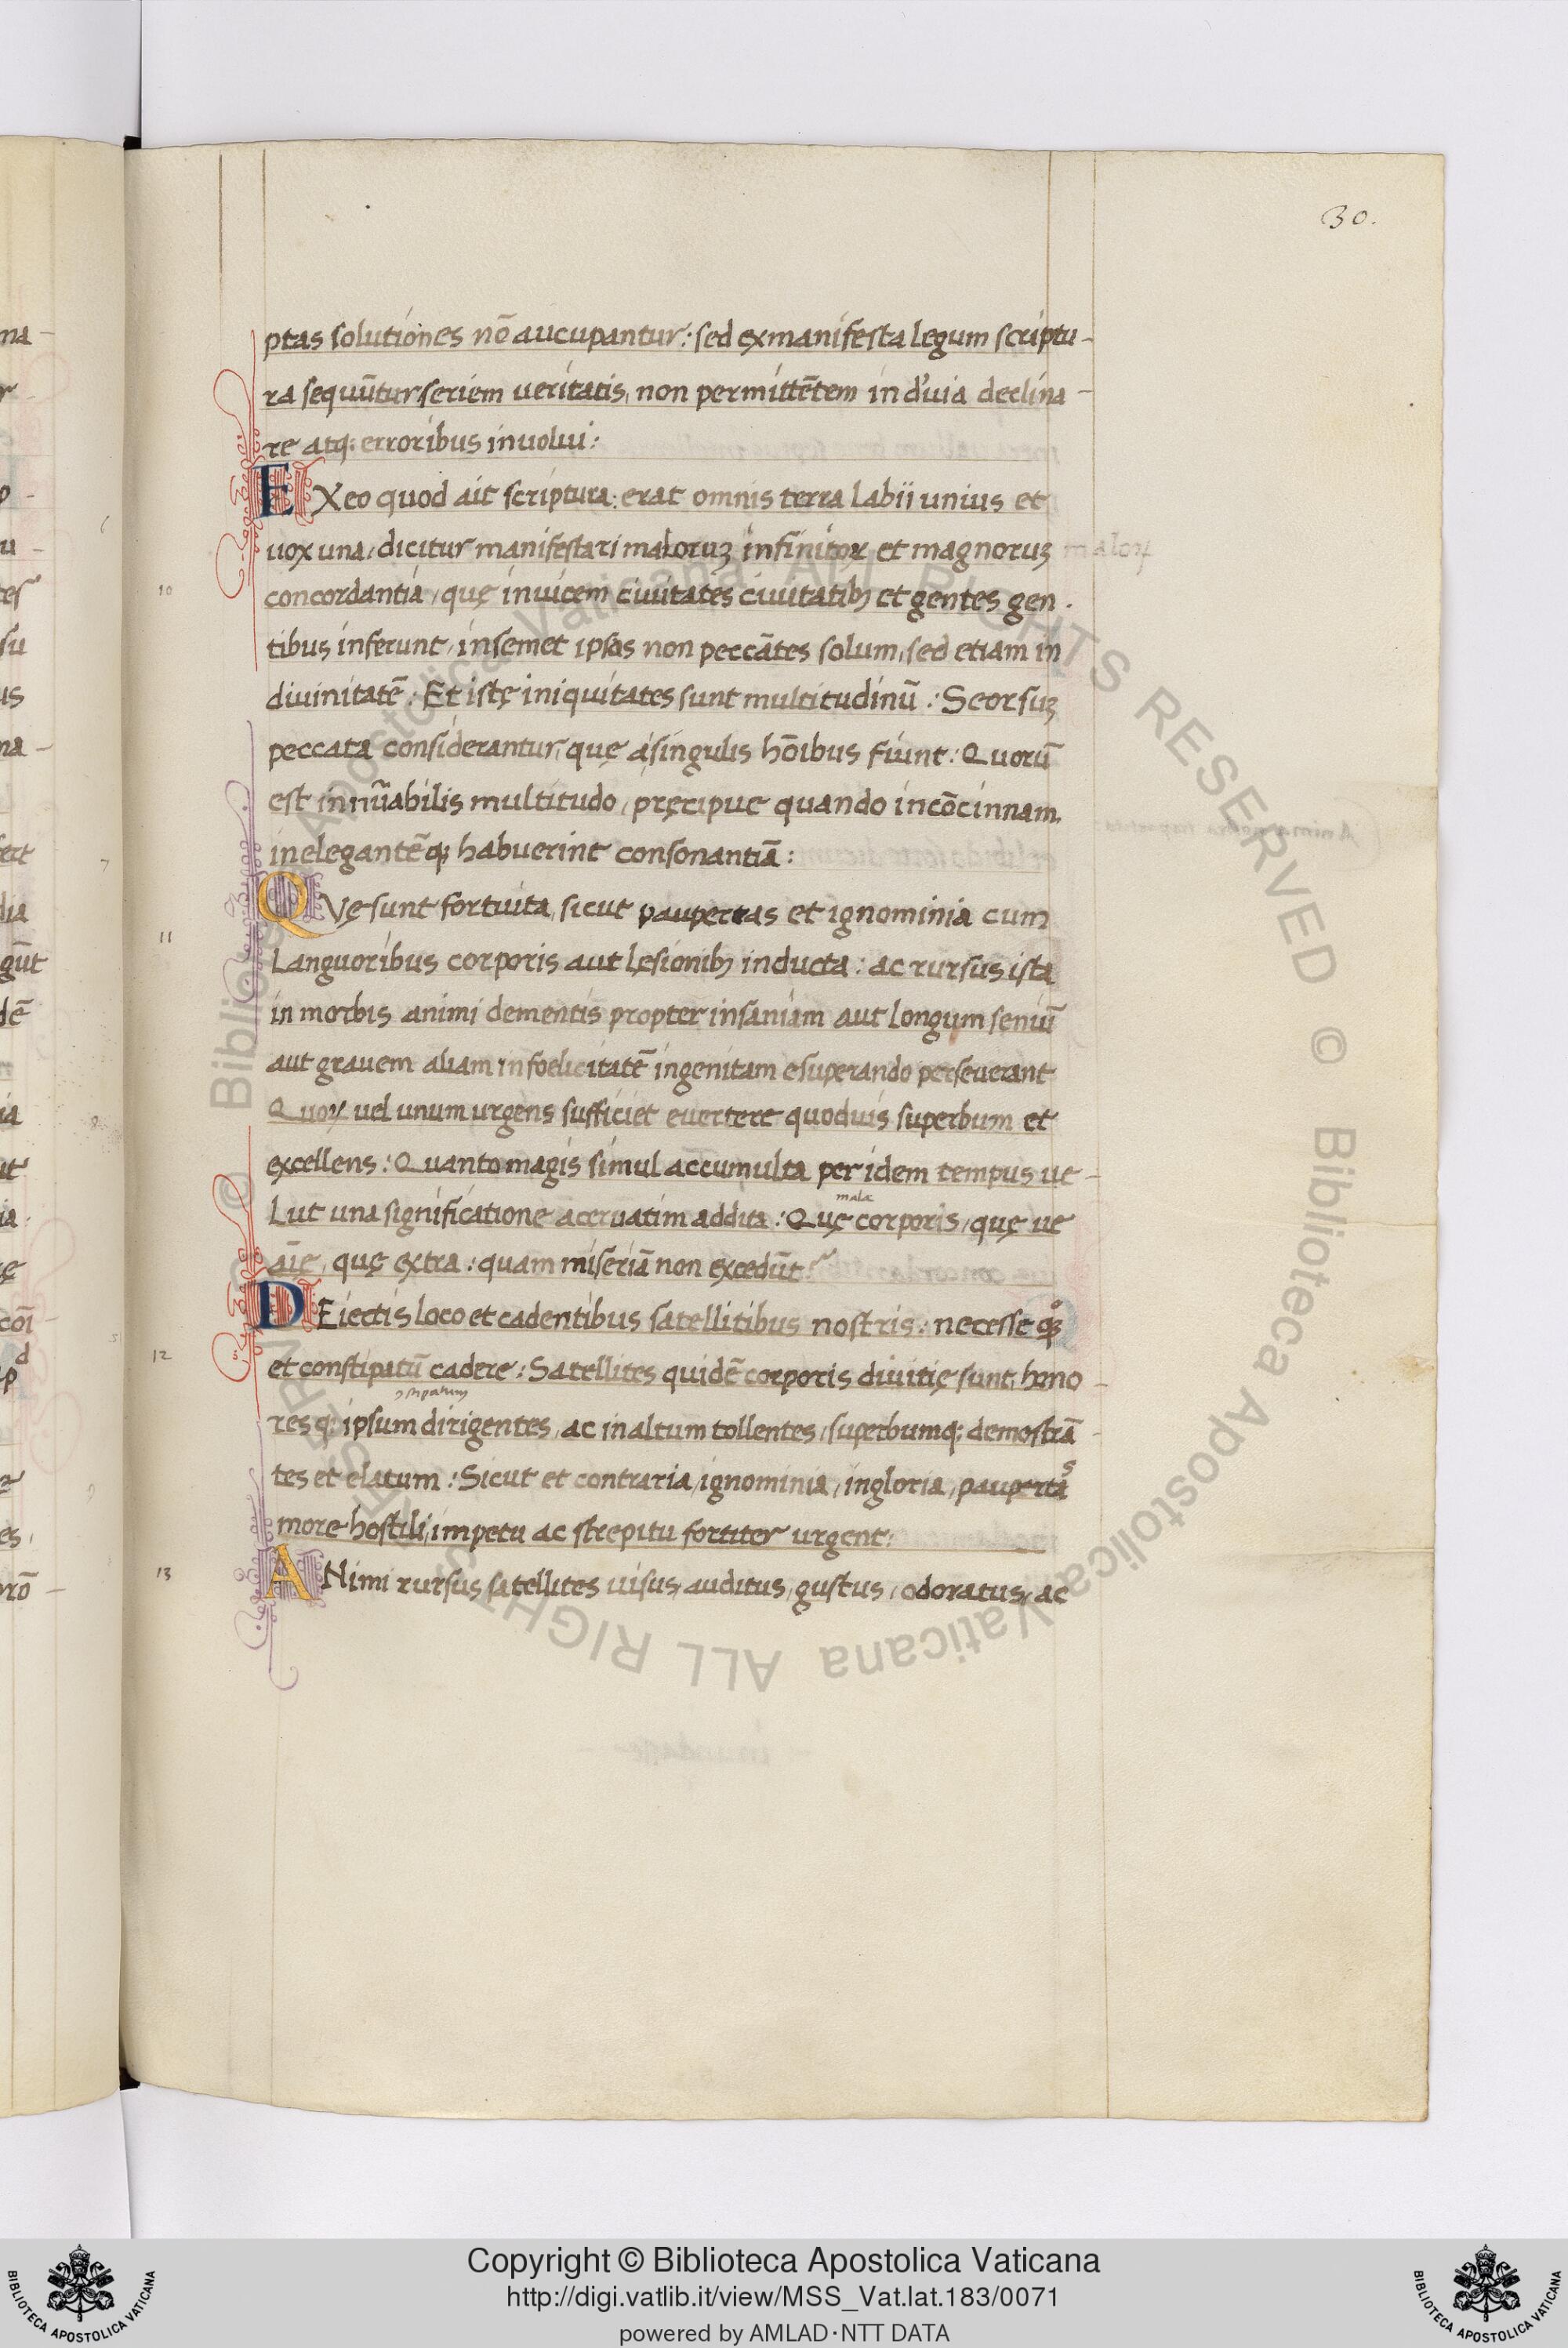 30.
ptas solutiones nō aucupantur: sed ex manifesta legum scriptu-
ra sequūtur seriem ueritatis, non permittētem in d'uia declina-
re atq; erroribus inuolui:
EX eo quod ait scriptura: erat omnis terra labii unius et
uox una, dicitur manifestari maloruꝫ infinitoꝝ et magnoruꝫ maloꝝ
10
concordantia, quę inuicem ciuitates ciuitatibꝫ et gentes gen.
tibus inferunt, in semet ipsos non peccātes solum, sed etiam in
diuinitatē: Et istę iniquitates sunt multitudinū: Seorsuꝫ
peccata considerantur, quę a singulis hōibus fiunt: Quorū
est innūabilis multitudo, pręcipue quando incōcinnam,
inelegantēqꝫ habuerint consonantiā:
11
QVę sunt fortuita, sicut paupertas et ignominia cum
languoribus corporis aut lęsionibꝫ inducta: ac rursus ista
in morbis animi dementis propter insaniam aut longum seniū
aut grauem aliam infoelicitatē ingenitam esuperando perseuerant
Quoꝝ uel unum urgens sufficiet euertere quoduis superbum et
excellens: Quanto magis simul accumulta per idem tempus ue-
lut una significatione aceruatim addita: Quę corporis, quę ue
mala
aīę, quę extra: quam miseriā non excedūt?
DEiectis loco et cadentibus satellitibus nostris: necesse qꝫ
12
et constipatū cadere: Satellites quidē corporis diuitię sunt, hono-
stipatum
res q; ipsum dirigentes, ac in altum tollentes, superbumq; demostrā-
tes et elatum: Sicut et contraria, ignominia, ingloria, paupertas
more hostili, impetu ac strepitu fortiter urgent:
13
ANimi rursus satellites uisus, auditus, gustus, odoratus, ac
© Biblioteca Apostolica Vaticana ALL RIGHTS RESERVED © Biblioteca Apostolica Vaticana ALL RIGHTS RESERVED
Copyright © Biblioteca Apostolica Vaticana
http://digi.vatlib.it/view/MSS_Vat.lat.183/0071
powered by AMLAD·NTT DATA
BIBLIOTECA APOSTOLICA VATICANA
BIBLIOTECA APOSTOLICA VATICANA